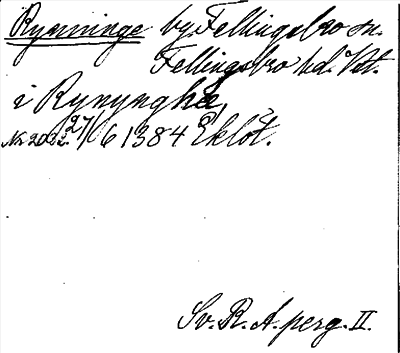 Rynninge by Fellingsbro sn.
Fellingsbro hd. Vstl.
i Rynynghæ
Nr 2022. 27/6 1384 Eklöt.
Sv. R. A. perg. II.